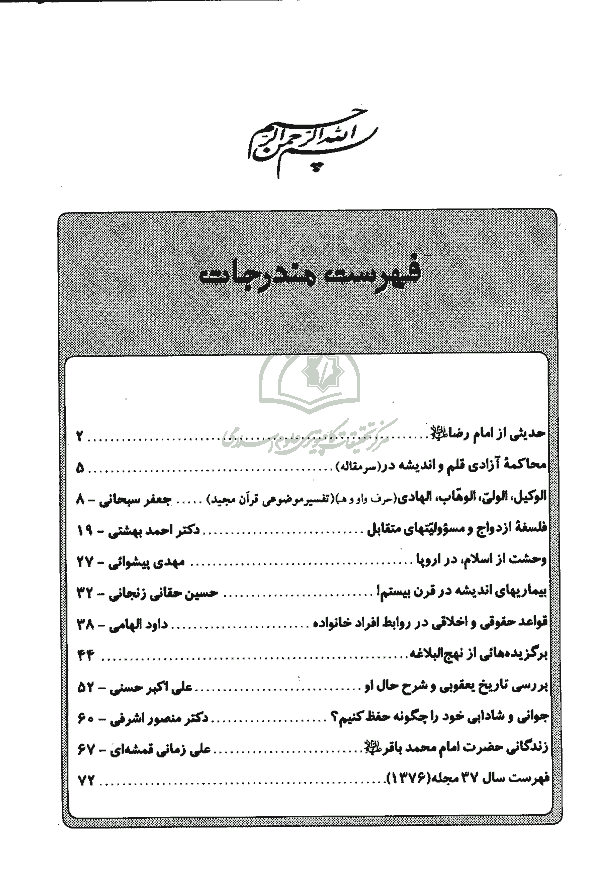 بسم الله الرحمن الرحیم
فهرست مندرجات
مرکز تحقیقات کامپیوتری علوم اسلامی
حدیثی از امام رضا ﷺ ........ ۲
محاکمهٔ آزادی قلم و اندیشه در (سرمقاله) ........ ۵
الوکیل، الولیّ، الوهّاب، الهادی (حرف واو و هـ) (تفسیر موضوعی قرآن مجید) ..... جعفر سبحانی - ۸
فلسفهٔ ازدواج و مسؤولیّتهای متقابل ........ دکتر احمد بهشتی - ۱۹
وحشت از اسلام، در اروپا ........ مهدی پیشوائی - ۲۷
بیماریهای اندیشه در قرن بیستم! ........ حسین حقانی زنجانی - ۳۲
قواعد حقوقی و اخلاقی در روابط افراد خانواده ........ داود الهامی - ۳۸
برگزیده‌هائی از نهج‌البلاغه ........ ۴۴
بررسی تاریخ یعقوبی و شرح حال او ........ علی اکبر حسنی - ۵۲
جوانی و شادابی خود را چگونه حفظ کنیم؟ ........ دکتر منصور اشرفی - ۶۰
زندگانی حضرت امام محمد باقر ........ علی زمانی قمشه‌ای - ۶۷
فهرست سال ۳۷ مجله (۱۳۷۶) ........ ۷۲